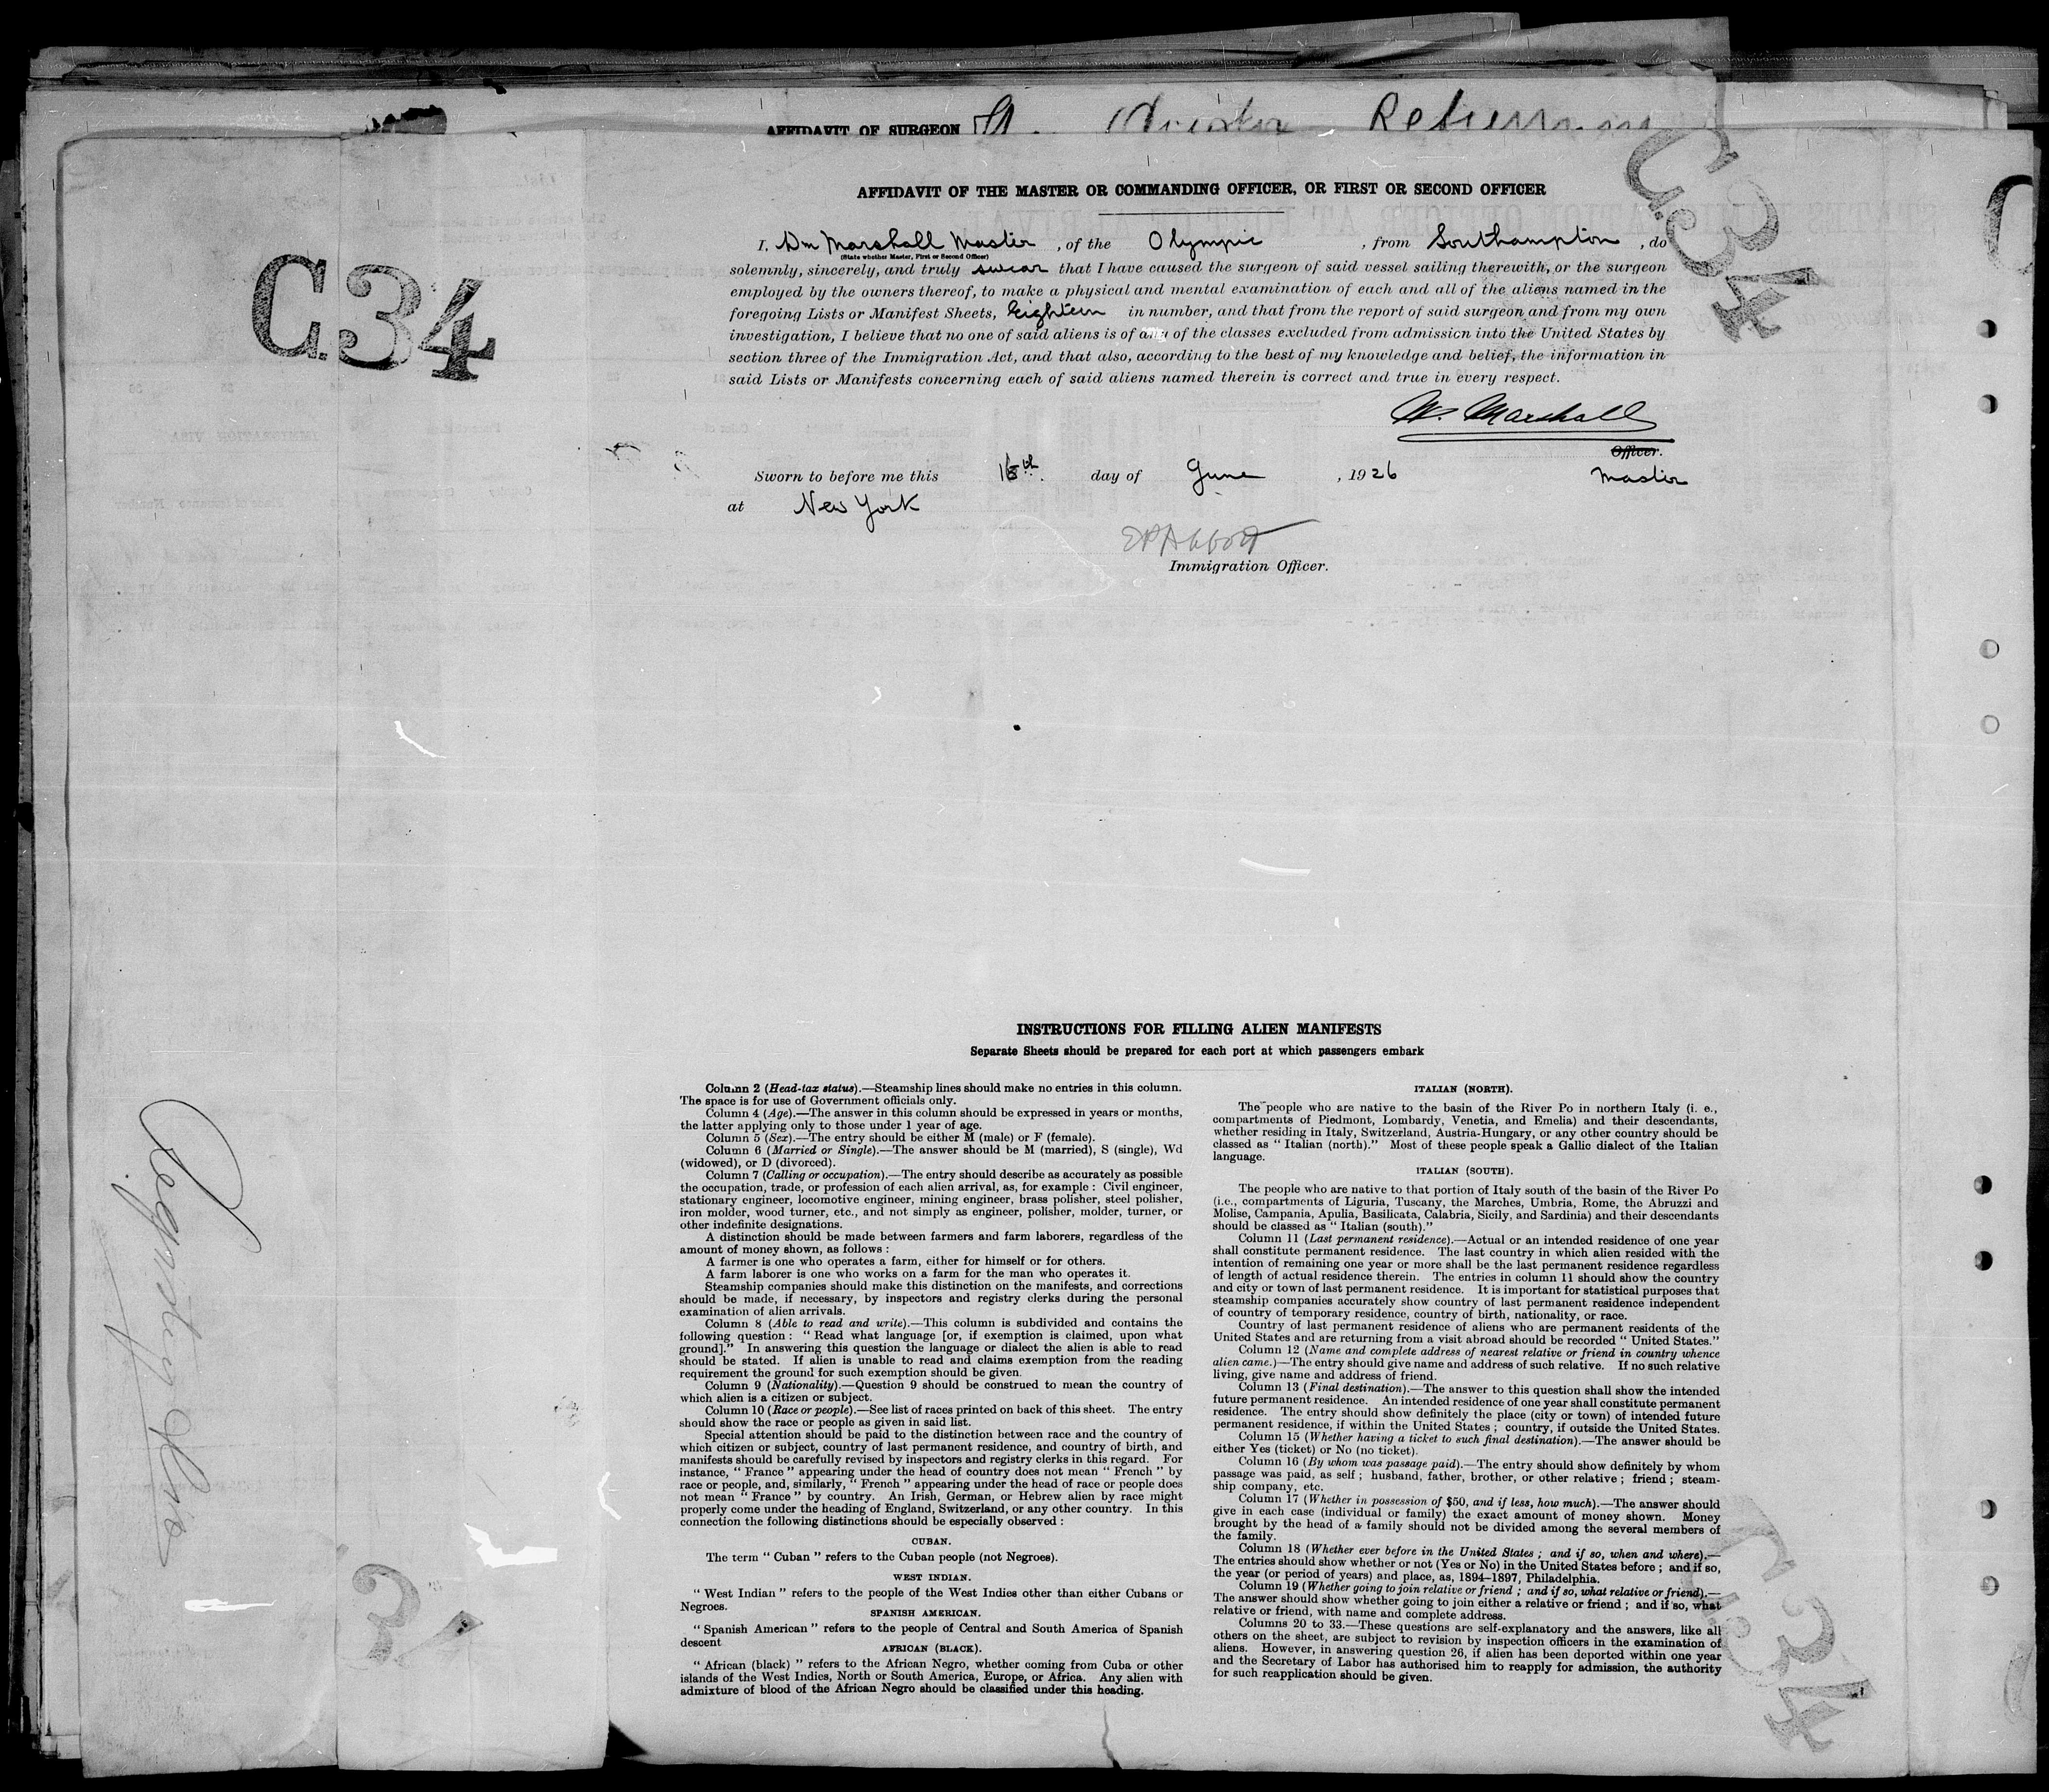 AFFIDAVIT OF SURGEON
AFFIDAVIT OF THE MASTER OR COMMANDING OFFICER, OR FIRST OR SECOND OFFICER
I, Wm Marshall Master , of the Olympic , from Southampton , do
(State whether Master, First or Second Officer)
solemnly, sincerely, and truly swear that I have caused the surgeon of said vessel sailing therewith, or the surgeon
employed by the owners thereof, to make a physical and mental examination of each and all of the aliens named in the
foregoing Lists or Manifest Sheets, Eighteen in number, and that from the report of said surgeon and from my own
investigation, I believe that no one of said aliens is of any of the classes excluded from admission into the United States by
section three of the Immigration Act, and that also, according to the best of my knowledge and belief, the information in
said Lists or Manifests concerning each of said aliens named therein is correct and true in every respect.
W. Marshall
Officer.
Sworn to before me this day of June , 1926 Master
at New York
Immigration Officer.
C.34
C.34
INSTRUCTIONS FOR FILLING ALIEN MANIFESTS
Separate Sheets should be prepared for each port at which passengers embark
Column 2 (Head-tax status).—Steamship lines should make no entries in this column.
The space is for use of Government officials only.
Column 4 (Age).—The answer in this column should be expressed in years or months,
the latter applying only to those under 1 year of age.
Column 5 (Sex).—The entry should be either M (male) or F (female).
Column 6 (Married or Single).—The answer should be M (married), S (single), Wd
(widowed), or D (divorced).
Column 7 (Calling or occupation).—The entry should describe as accurately as possible
the occupation, trade, or profession of each alien arrival, as, for example : Civil engineer,
stationary engineer, locomotive engineer, mining engineer, brass polisher, steel polisher,
iron molder, wood turner, etc., and not simply as engineer, polisher, molder, turner, or
other indefinite designations.
A distinction should be made between farmers and farm laborers, regardless of the
amount of money shown, as follows :
A farmer is one who operates a farm, either for himself or for others.
A farm laborer is one who works on a farm for the man who operates it.
Steamship companies should make this distinction on the manifests, and corrections
should be made, if necessary, by inspectors and registry clerks during the personal
examination of alien arrivals.
Column 8 (Able to read and write).—This column is subdivided and contains the
following question : " Read what language [or, if exemption is claimed, upon what
ground]." In answering this question the language or dialect the alien is able to read
should be stated. If alien is unable to read and claims exemption from the reading
requirement the ground for such exemption should be given.
Column 9 (Nationality).—Question 9 should be construed to mean the country of
which alien is a citizen or subject.
Column 10 (Race or people).—See list of races printed on back of this sheet. The entry
should show the race or people as given in said list.
Special attention should be paid to the distinction between race and the country of
which citizen or subject, country of last permanent residence, and country of birth, and
manifests should be carefully revised by inspectors and registry clerks in this regard. For
instance, " France " appearing under the head of country does not mean " French " by
race or people, and, similarly, " French " appearing under the head of race or people does
not mean " France " by country. An Irish, German, or Hebrew alien by race might
properly come under the heading of England, Switzerland, or any other country. In this
connection the following distinctions should be especially observed :
CUBAN.
The term " Cuban " refers to the Cuban people (not Negroes).
WEST INDIAN.
" West Indian " refers to the people of the West Indies other than either Cubans or
Negroes.
SPANISH AMERICAN.
" Spanish American " refers to the people of Central and South America of Spanish
descent
AFRICAN (BLACK).
" African (black) " refers to the African Negro, whether coming from Cuba or other
islands of the West Indies, North or South America, Europe, or Africa. Any alien with
admixture of blood of the African Negro should be classified under this heading.
ITALIAN (NORTH).
The people who are native to the basin of the River Po in northern Italy (i. e.,
compartments of Piedmont, Lombardy, Venetia, and Emelia) and their descendants,
whether residing in Italy, Switzerland, Austria-Hungary, or any other country should be
classed as " Italian (north)." Most of these people speak a Gallic dialect of the Italian
language.
ITALIAN (SOUTH).
The people who are native to that portion of Italy south of the basin of the River Po
(i.e., compartments of Liguria, Tuscany, the Marches, Umbria, Rome, the Abruzzi and
Molise, Campania, Apulia, Basilicata, Calabria, Sicily, and Sardinia) and their descendants
should be classed as " Italian (south)."
Column 11 (Last permanent residence).—Actual or an intended residence of one year
shall constitute permanent residence. The last country in which alien resided with the
intention of remaining one year or more shall be the last permanent residence regardless
of length of actual residence therein. The entries in column 11 should show the country
and city or town of last permanent residence. It is important for statistical purposes that
steamship companies accurately show country of last permanent residence independent
of country of temporary residence, country of birth, nationality, or race.
Country of last permanent residence of aliens who are permanent residents of the
United States and are returning from a visit abroad should be recorded " United States."
Column 12 (Name and complete address of nearest relative or friend in country whence
alien came.)—The entry should give name and address of such relative. If no such relative
living, give name and address of friend.
Column 13 (Final destination).—The answer to this question shall show the intended
future permanent residence. An intended residence of one year shall constitute permanent
residence. The entry should show definitely the place (city or town) of intended future
permanent residence, if within the United States ; country, if outside the United States.
Column 15 (Whether having a ticket to such final destination).—The answer should be
either Yes (ticket) or No (no ticket).
Column 16 (By whom was passage paid).—The entry should show definitely by whom
passage was paid, as self ; husband, father, brother, or other relative ; friend ; steam-
ship company, etc.
Column 17 (Whether in possession of $50, and if less, how much).—The answer should
give in each case (individual or family) the exact amount of money shown. Money
brought by the head of a family should not be divided among the several members of
the family.
Column 18 (Whether ever before in the United States ; and if so, when and where).—
The entries should show whether or not (Yes or No) in the United States before ; and if so,
the year (or period of years) and place, as, 1894–1897, Philadelphia.
Column 19 (Whether going to join relative or friend ; and if so, what relative or friend).—
The answer should show whether going to join either a relative or friend ; and if so, what
relative or friend, with name and complete address.
Columns 20 to 33.—These questions are self-explanatory and the answers, like all
others on the sheet, are subject to revision by inspection officers in the examination of
aliens. However, in answering question 26, if alien has been deported within one year
and the Secretary of Labor has authorised him to reapply for admission, the authority
for such reapplication should be given.
C.34